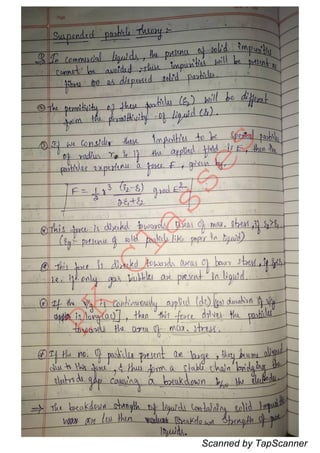 Suspended particle Theory :-
In commercial liquids, the presence of solid impurities
cannot be avoided, these impurities will be present as
fibres or as dispersed solid particle.
The permittivity of these particles (ε2) will be different
from the permittivity of liquid (ε1).
If we consider these Impurities to be spherical particles
of radius r & if the applied field is E, then the
particles experience a force F, given by
F = 1/2 r³ (ε2-ε1)/2ε1+ε2 grad E²
This force is directed towards areas of max. stress, if ε2>ε1,
presence of solid particle like paper in liquid)
This force is directed towards areas of lower stress, if
i.e. if only gas bubbles are present in liquid.
If the Vg is continuously applied (dc) [or duration of Vg
is long (ac)], then this force drives the particles
towards the area of max. stress.
If the no. of particles present are large, they become aligned
due to this force, & thus form a stable chain bridging the
electrode gap causing a breakdown b/w the electrodes
⇒ The breakdown strength of liquids containing solid impurities
are less then Breakdown strength of pure
liquids.
Classes
Scanned by TapScanner